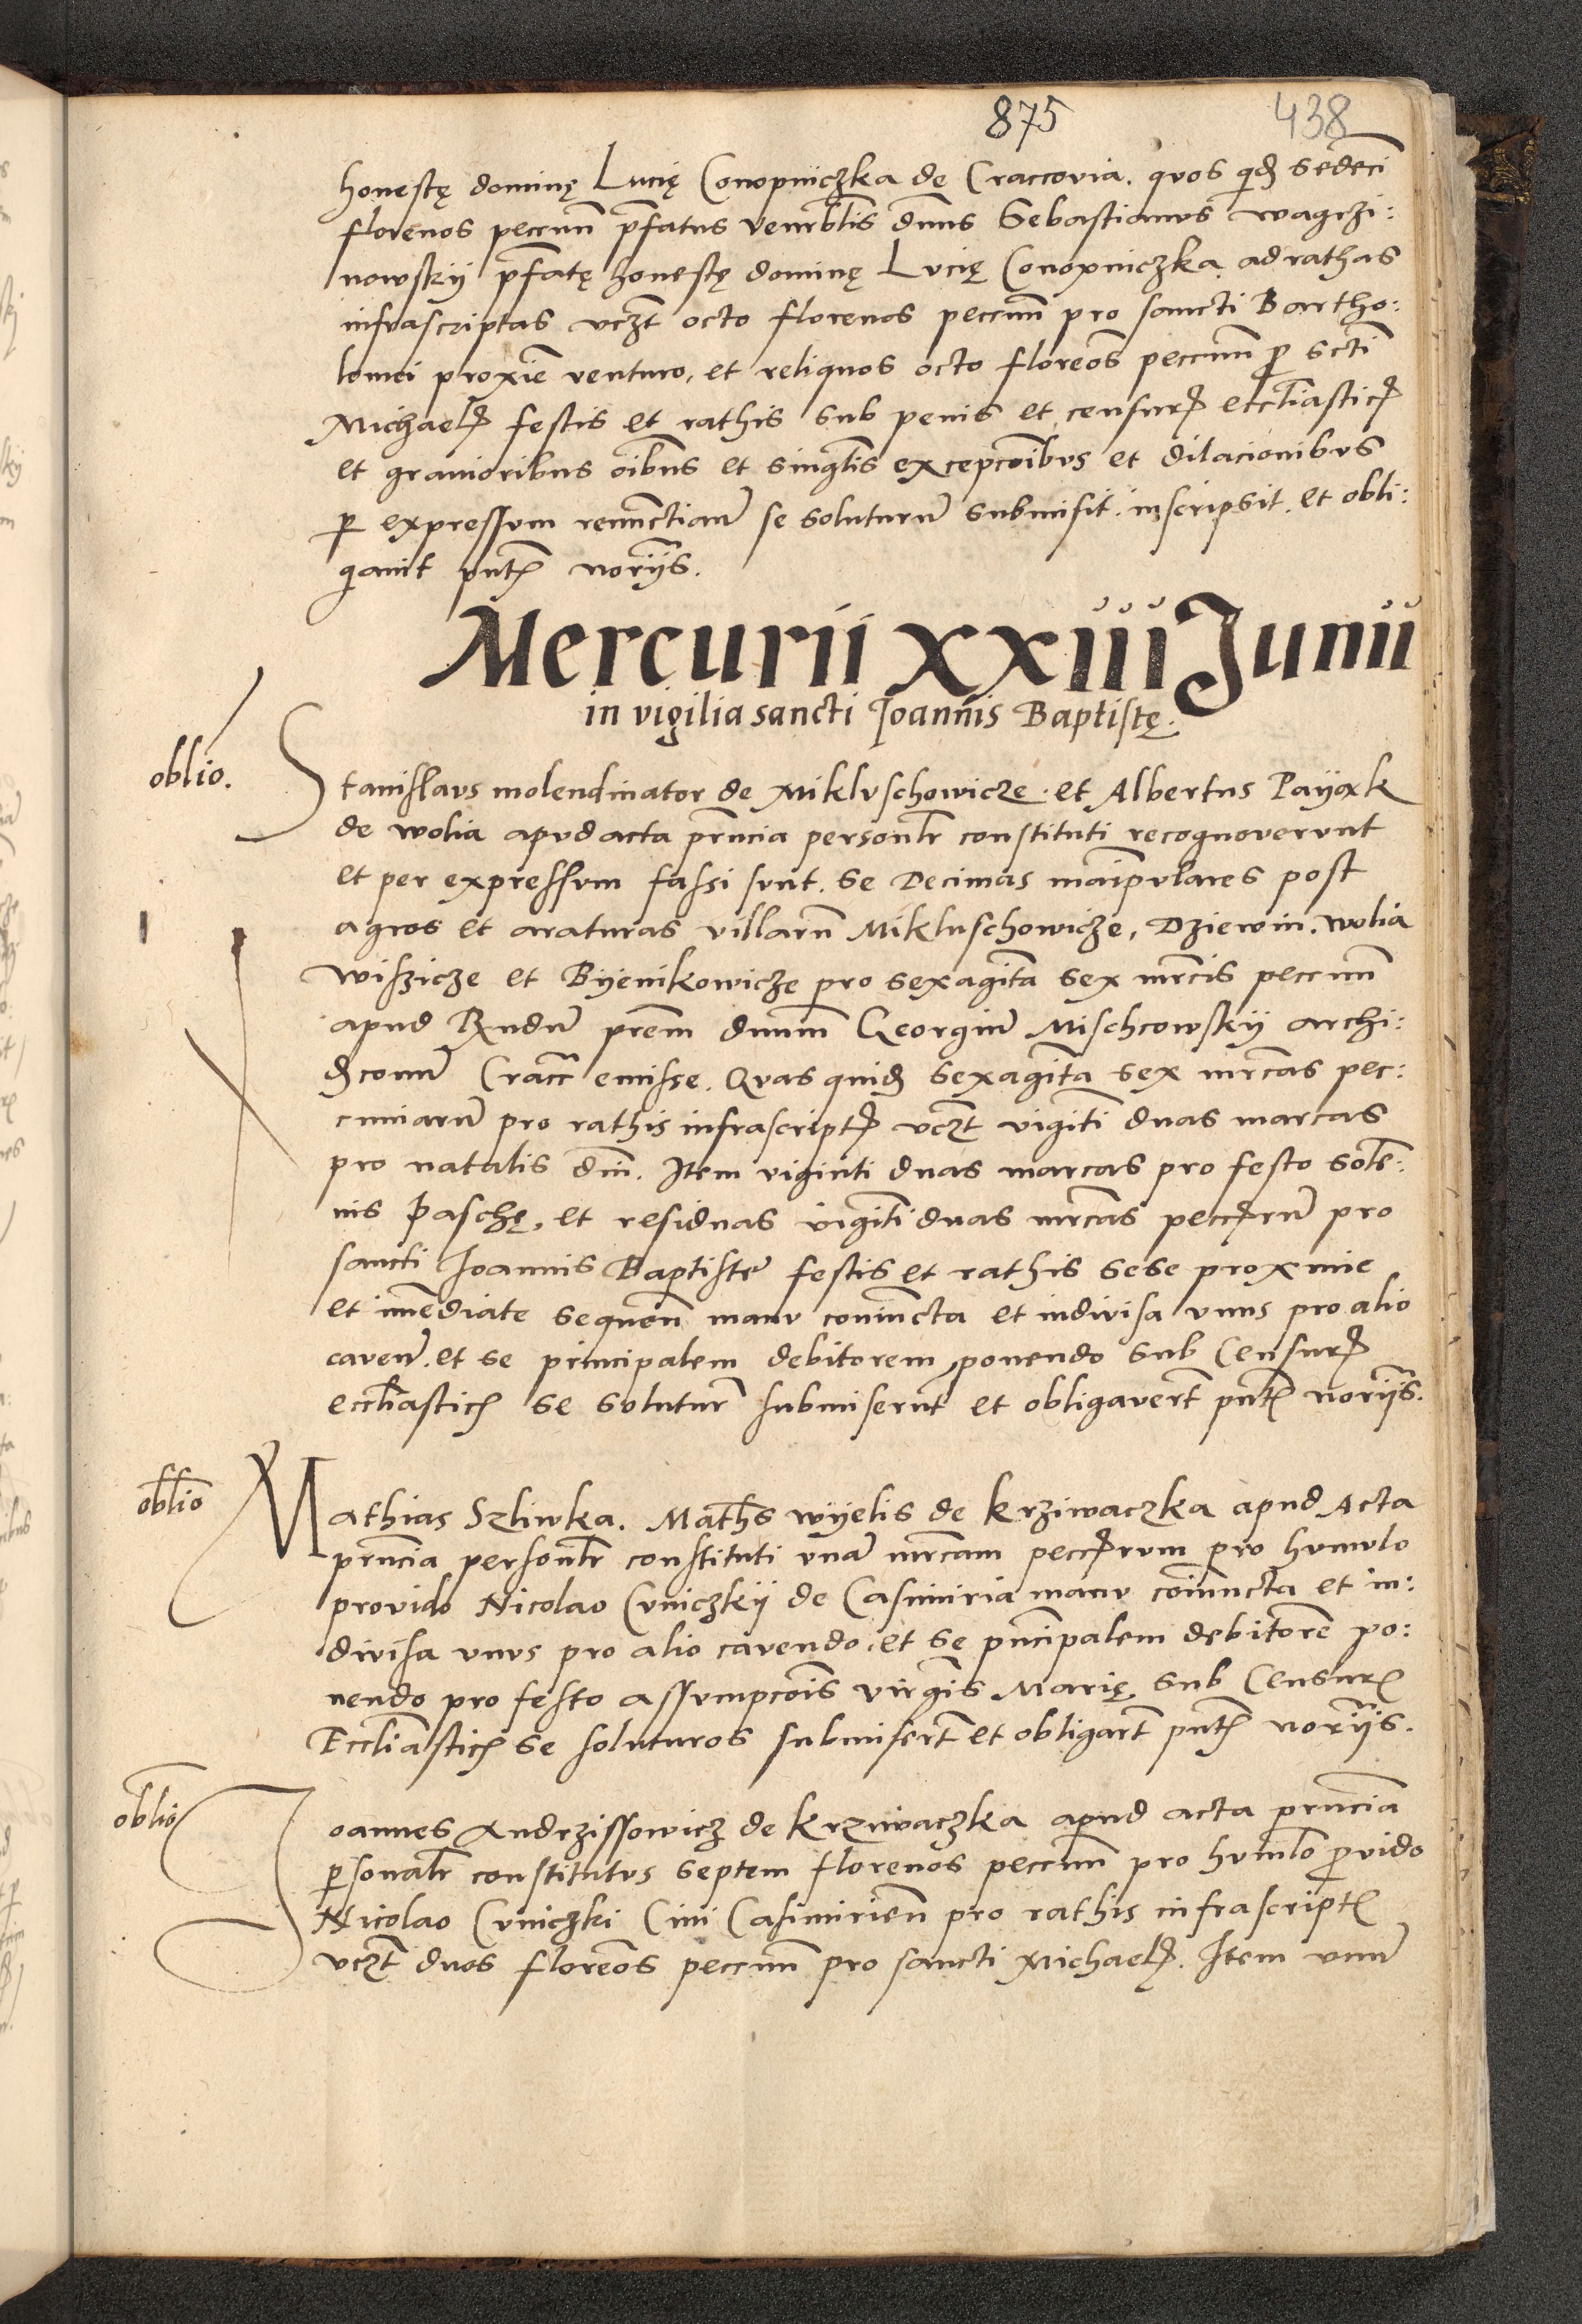 875 438
honestę dominę Lucię Conopniczka de Craccovia. quos qd sedeci
florenos peccun pfatus venerblis dnus Sebastianus wagrzi:
nowskÿ pfatę honestę dominę Lucię Conopniczka ad rathas
infrascriptas vczt octo florenos peccun pro sancti Bartho:
lomei proxie venturo, et reliquos octo floreos peccun p scti
Michael festis et rathis sub penis et censur eccliastic
et gravioribus oibus et singlis excepcoibus et dilacionibus
p expressum renunctian se soluturu submisit. inscripsit. et obli:
gavit pnt norÿs.
Mercurii xxiii Junii
in vigilia sancti Joannis Baptistę.
oblio.
Stanislaus molendinator de Mikluschowicze. et Albertus Payąk
de wolia apud acta prncia personlr constituti recognoverunt
et per expressum fassi sunt. se Decimas maipulares post
agros et araturas villaru Mikluschowicze, Dziewin. wolia
wiszicze et Bÿenikowicze pro sexaginta sex mrcis peccun
apud Rndu prem dnum Georgiu Mischcowskÿ archi:
dconu Cracc emisse. Quas quid sexaginta sex mrcas pec:
cuniaru pro rathis infrascript vczt viginti duas marcas
pro natalis dni. Item viginti duas marcas pro festo sole:
nis Paschę, et residuas viginti duas mrcas peccaru pro
sancti Joannis Baptiste festis et rathis sese proxime
et imediate sequen manu coniuncta et indivisa unus pro alio
caven. et se principalem debitorem ponendo sub Censur
eccliastic se solutur submiserut et obligavert pnt norÿs.
oblio
Mathias Szliwka. Maths wÿelis de krziwaczka apud Acta
prncia personlr constituti una mrcam peccarum pro humulo
provido Nicolao Cruiczkÿ de Casimiria manu coniuncta et in:
divisa unus pro alio cavendo. et se pncipalem debitore po:
nendo pro festo assumpcois virginis Marię. sub Censur
Eccliastic se soluturos submisert et obligart pnt norÿs.
oblio
Joannes Andrzissowicz de krziwaczka apud acta prncia
psonalr constitutus septem florenos peccun pro humlo pvido
Nicolao Cruiczki Civi Casimirien pro rathis infrascript
vczt duos floreos peccun pro sancti Michael. Item unu